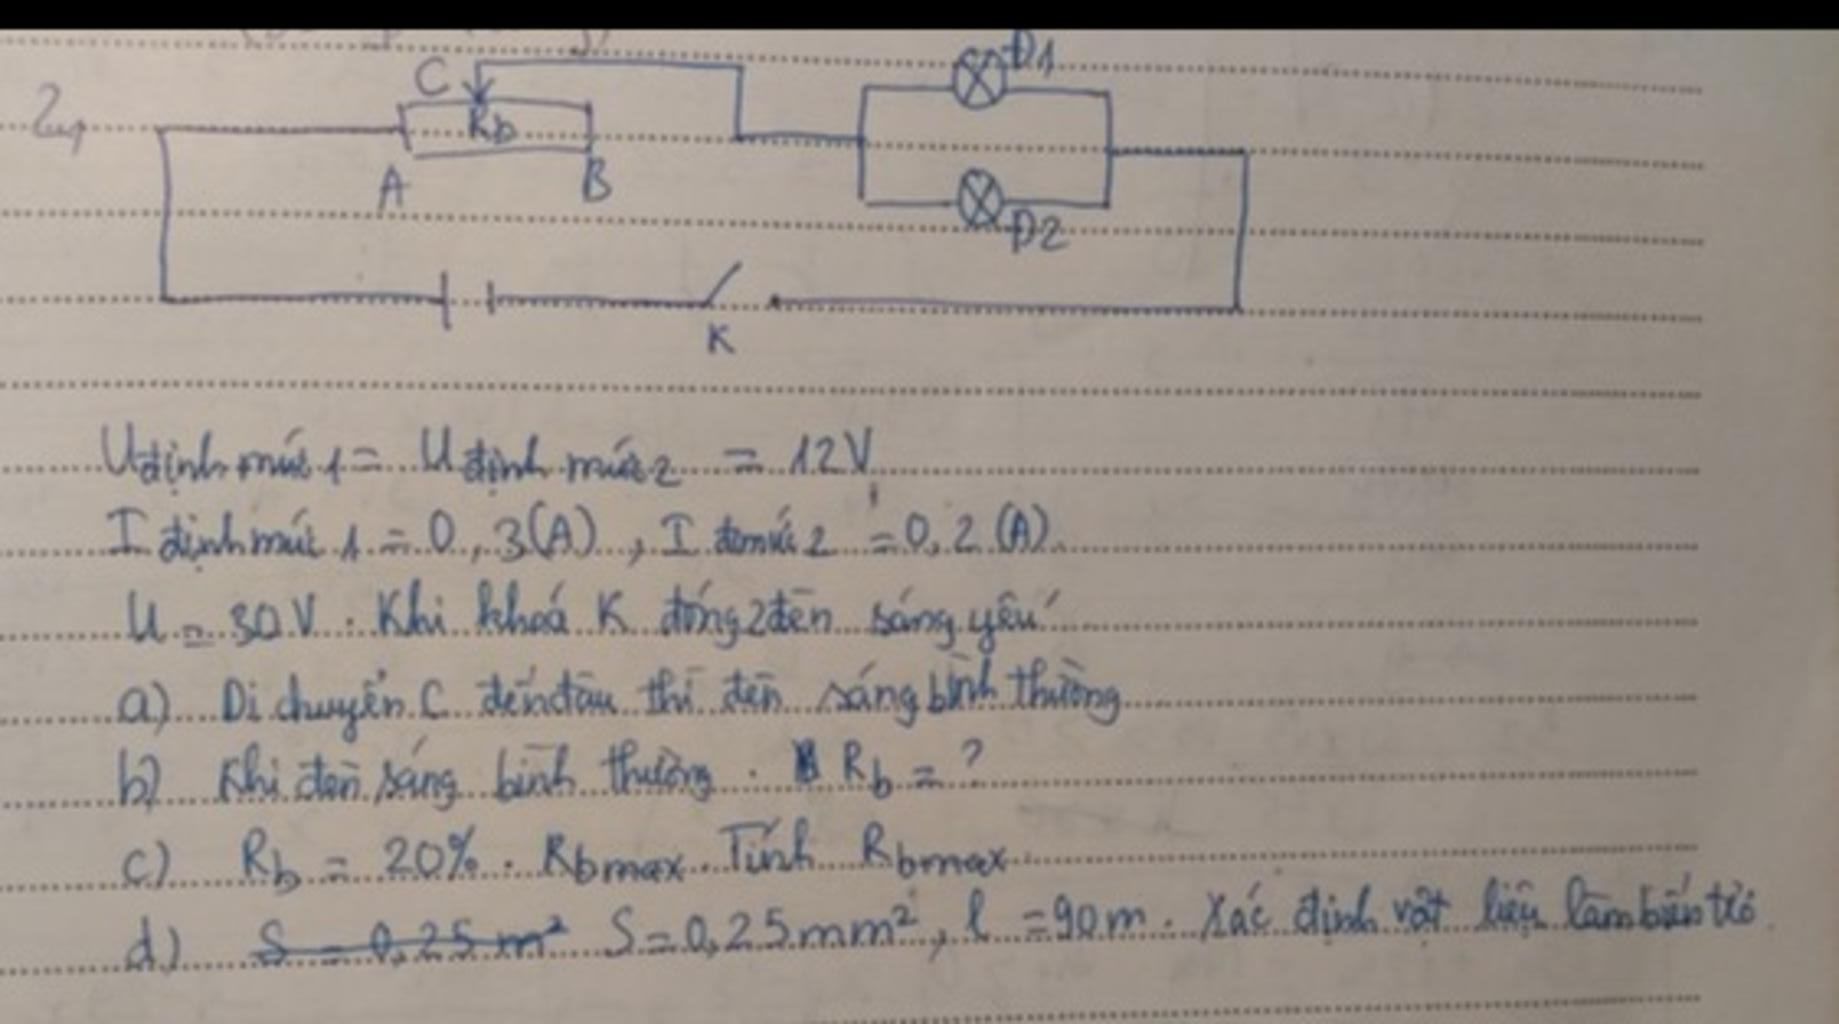 2,
C
Rb
A
B
Đ1
Đ2
K
Uđịnh mức 1 = Uđịnh mức 2 = 12V
I định mức 1 = 0,3(A), I đmức 2 = 0,2 (A)
U = 30V. Khi khoá K đóng 2 đèn sáng yếu
a) Di chuyển C đến đâu thì đèn sáng bình thường
b) Khi đèn sáng bình thường. Rb = ?
c) Rb = 20%. Rbmax. Tính Rbmax
d) S = 0,25 m² S = 0,25mm², l = 90m. Xác định vật liệu làm biến trở